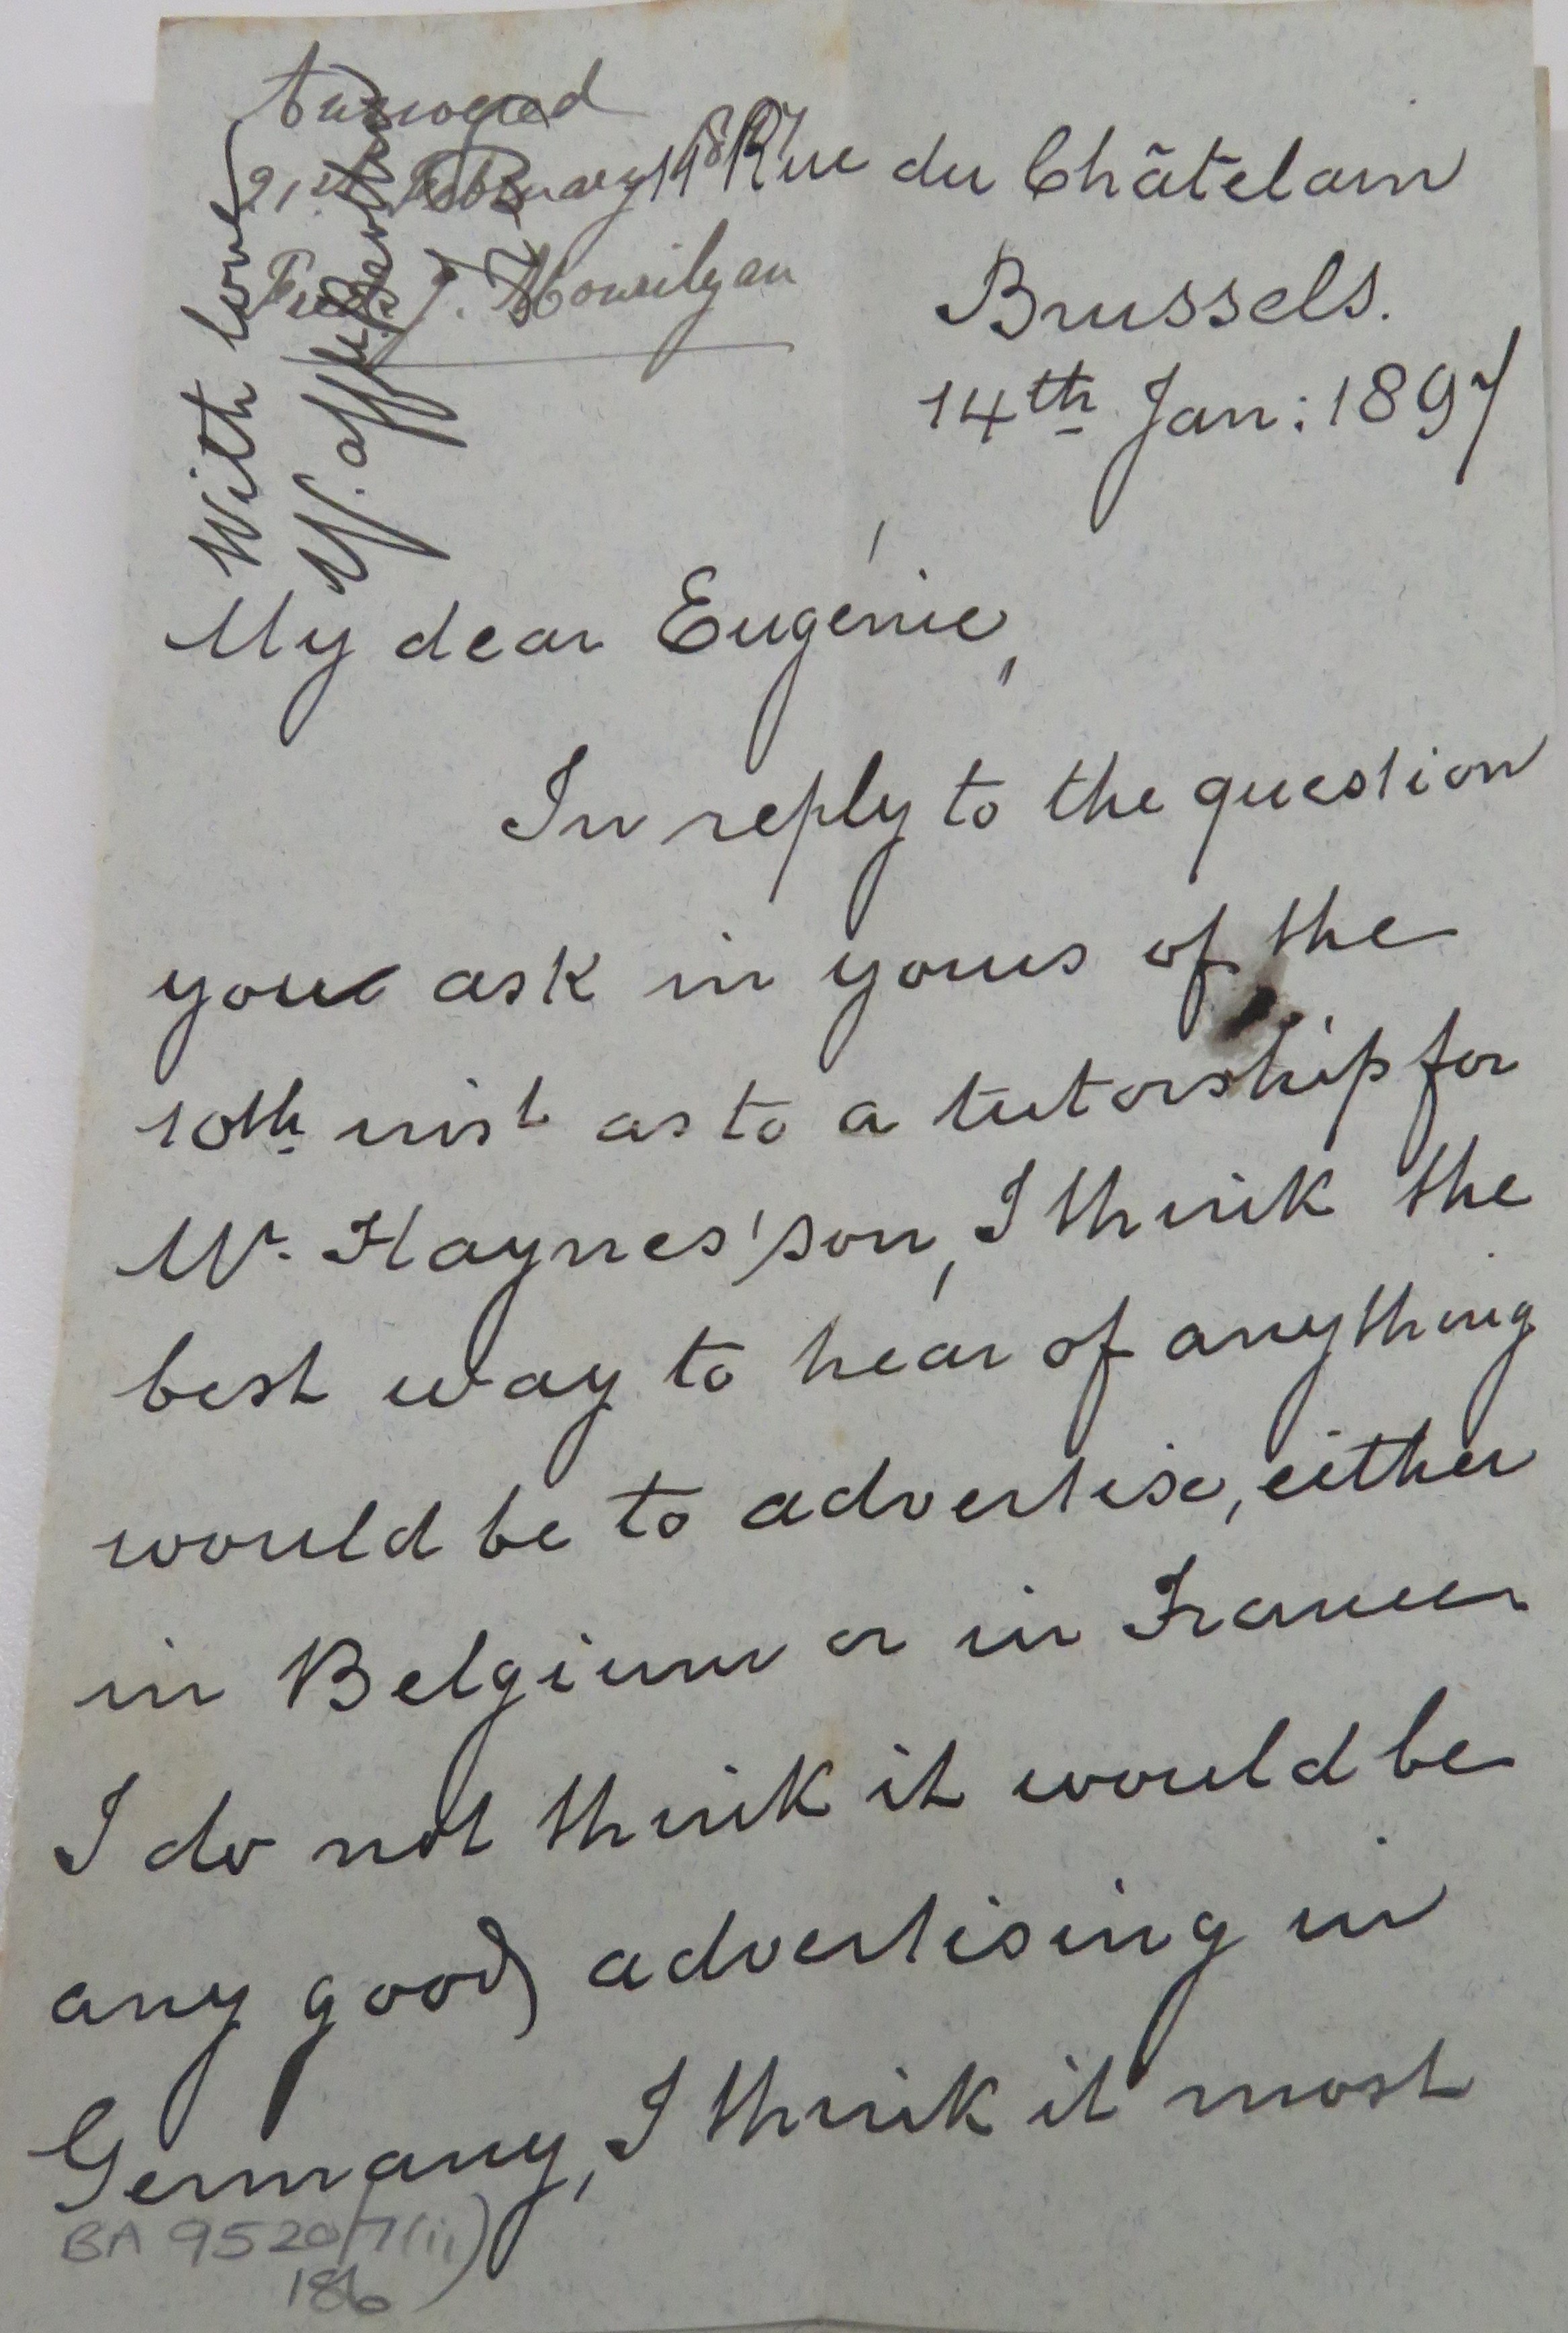 Answered
21st February 1897
Fred. J. Mouritzen
With love
Yr. affte.
14 Rue du Châtelain
Brussels.
14th Jan: 1897
My dear Eugénie,
In reply to the question
you ask in yours of the
10th inst as to a tutorship for
Mr. Haynes' son, I think the
best way to hear of anything
would be to advertise, either
in Belgium or in France.
I do not think it would be
any good advertising in
Germany, I think it most
BA 9520/7(ii)
186